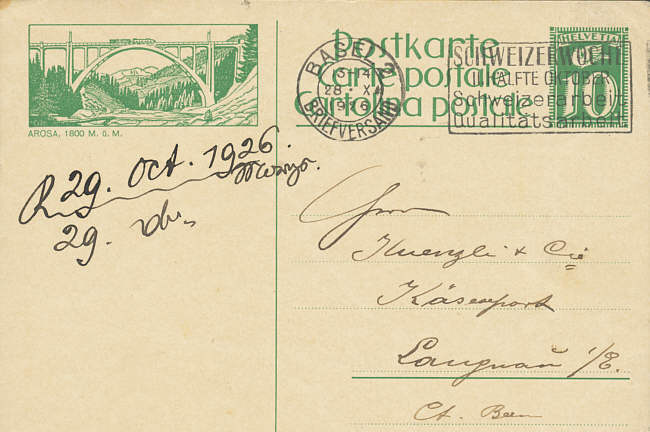 Postkarte
Carte postale
Cartolina postale
HELVETIA
10
BASEL 2
28. X.
BRIEFVERSAND
SCHWEIZERWOCHE
HÄLFTE OKTOBER
Schweizerarbeit
Qualitätsarbeit
AROSA, 1800 M. ü. M.
R 29. Oct. 1926.
29.
Herrn
Kuenzli & Cie
Käseexport
Langnau i/E.
Ct. Bern